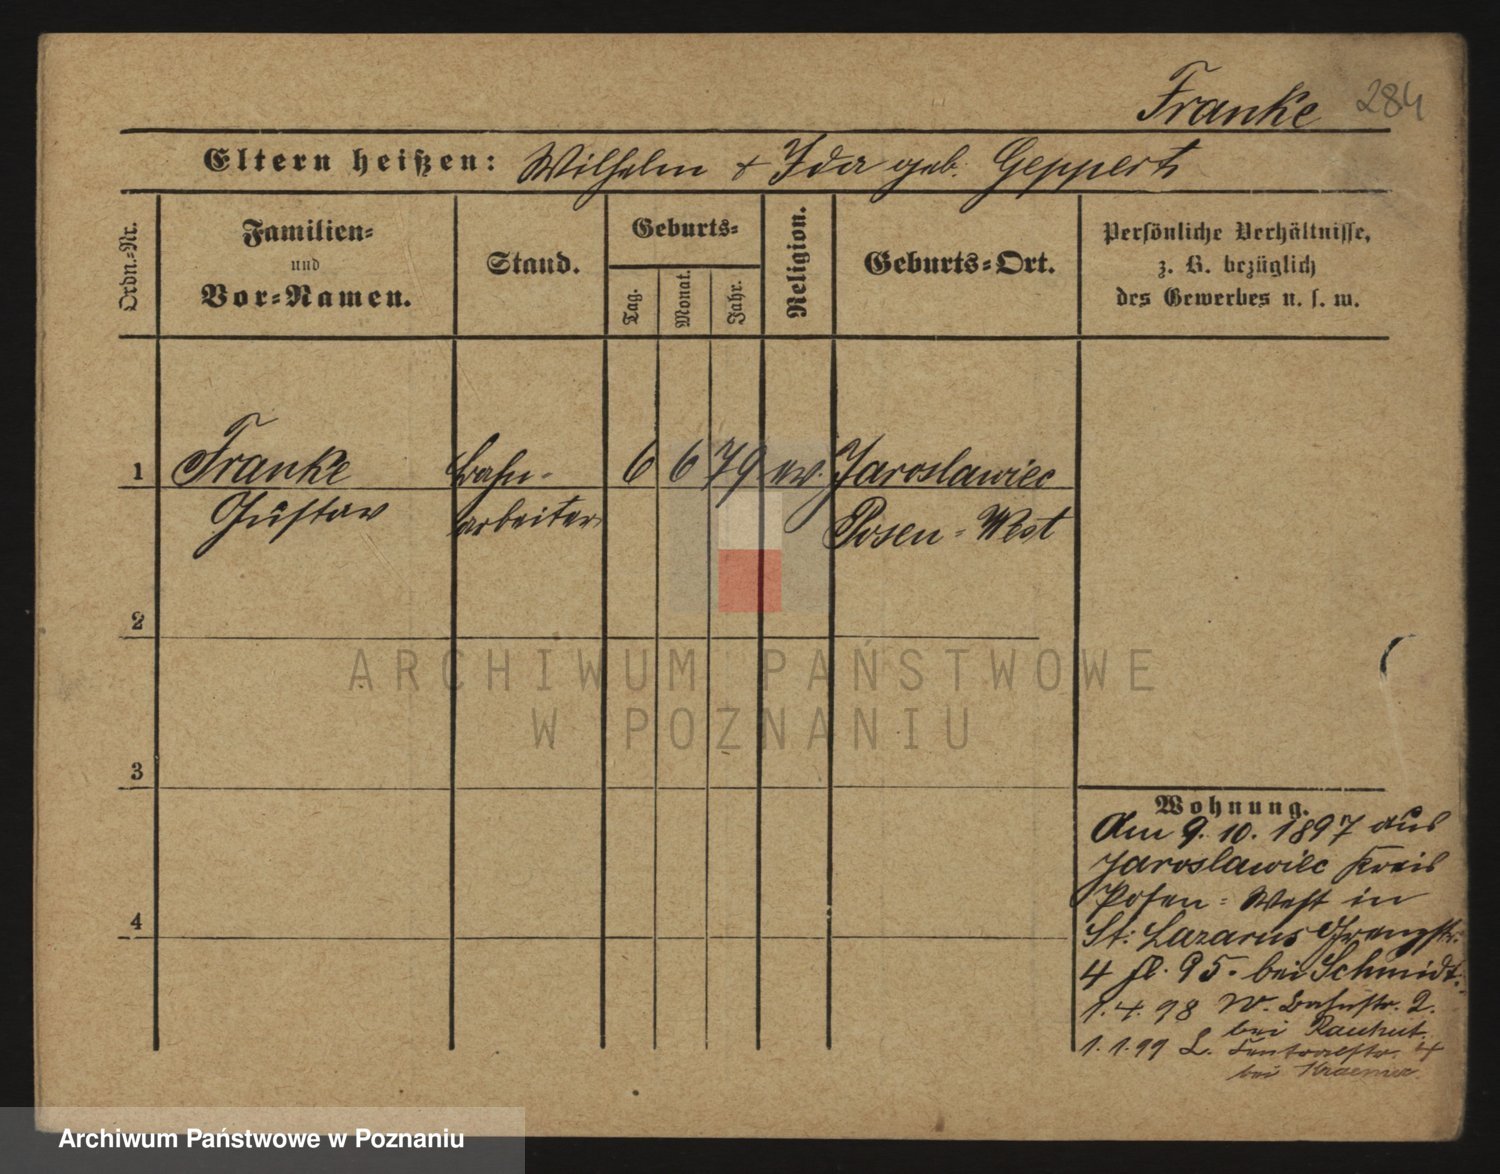 Franke 284
Eltern heißen: Wilhelm & Ida geb. Geppert
Ordn.-Nr.
Familien-
und
Vor-Namen.
Stand.
Geburts-
Tag.
Monat.
Jahr.
Religion.
Geburts-Ort.
Persönliche Verhältnisse,
z. B. bezüglich
des Gewerbes u. s. w.
1 Franke Bahn- 6 6 79 ev. Jaroslawiec
Gustav arbeiter Posen-West
2
ARCHIWUM PAŃSTWOWE
W POZNANIU
3
Wohnung.
Am 9. 10. 1897 aus
Jaroslawiec Kreis
Posen-West in
4
St. Lazarus Grenzstr.
4 fl. 95. bei Schmidt.
1. 4. 98 W. Bahnstr. 2.
bei Rauhut.
1. 1. 99 L. Centralstr. 4
bei
Archiwum Państwowe w Poznaniu